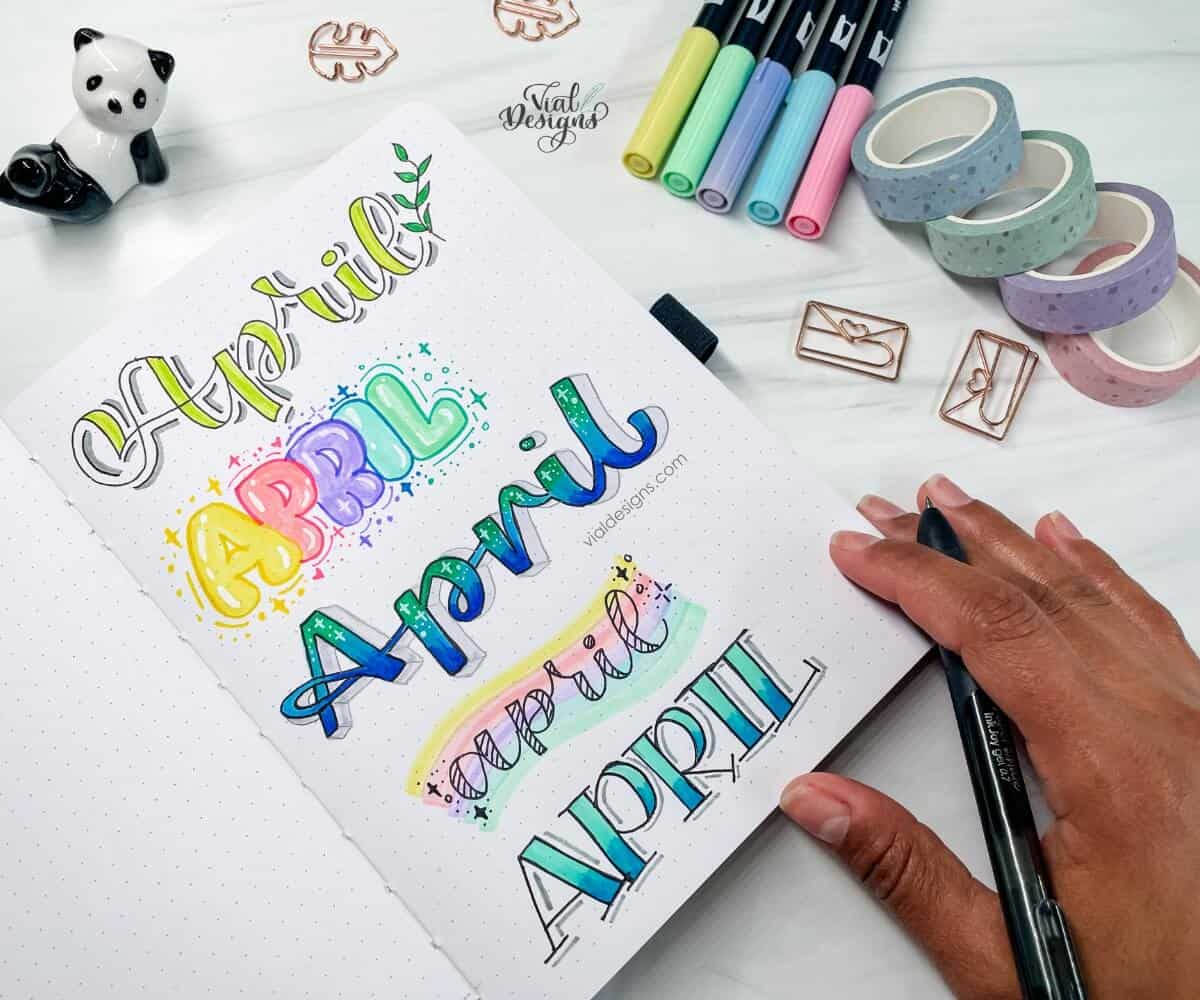 Vial
Designs
April
APRIL
April
vialdesigns.com
april
APRIL
InkJoy gel 0.7